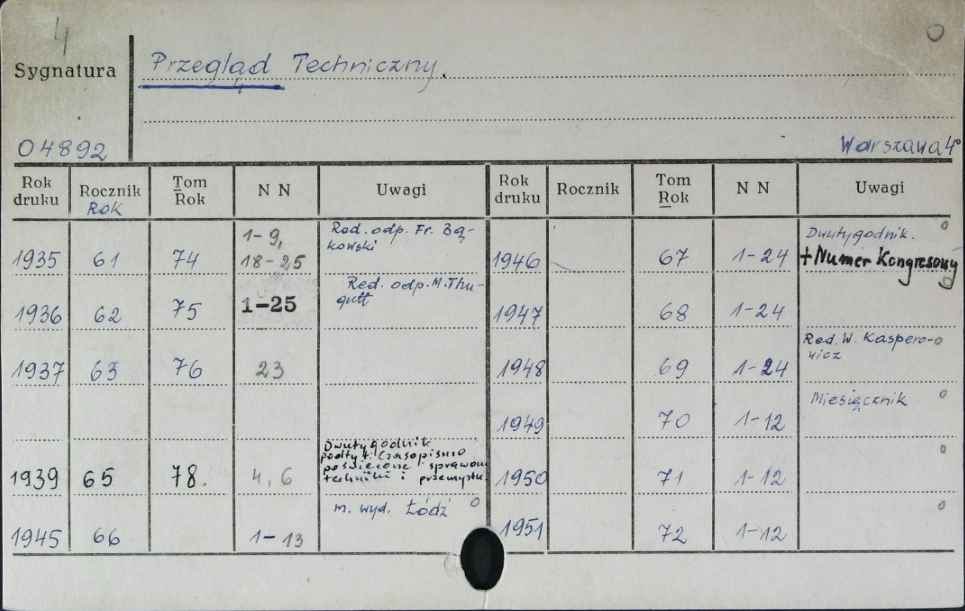 4
Sygnatura Przegląd Techniczny.
04892 Warszawa 4°
Rok druku Rocznik Rok Tom Rok N N Uwagi
1935 61 74 1-9, 18-25 Red. odp. Fr. Bąkowski
1936 62 75 1-25 Red. odp. M. Thugutt
1937 63 76 23
1939 65 78. 4, 6 Dwutygodnik podtyt. Czasopismo poświęcone sprawom techniki i przemysłu
1945 66 1-13 m. wyd. Łódź
Rok druku Rocznik Tom Rok N N Uwagi
1946 67 1-24 Dwutygodnik. + Numer Kongresowy
1947 68 1-24
1948 69 1-24 Red. W. Kasperowicz
1949 70 1-12 Miesięcznik
1950 71 1-12
1951 72 1-12